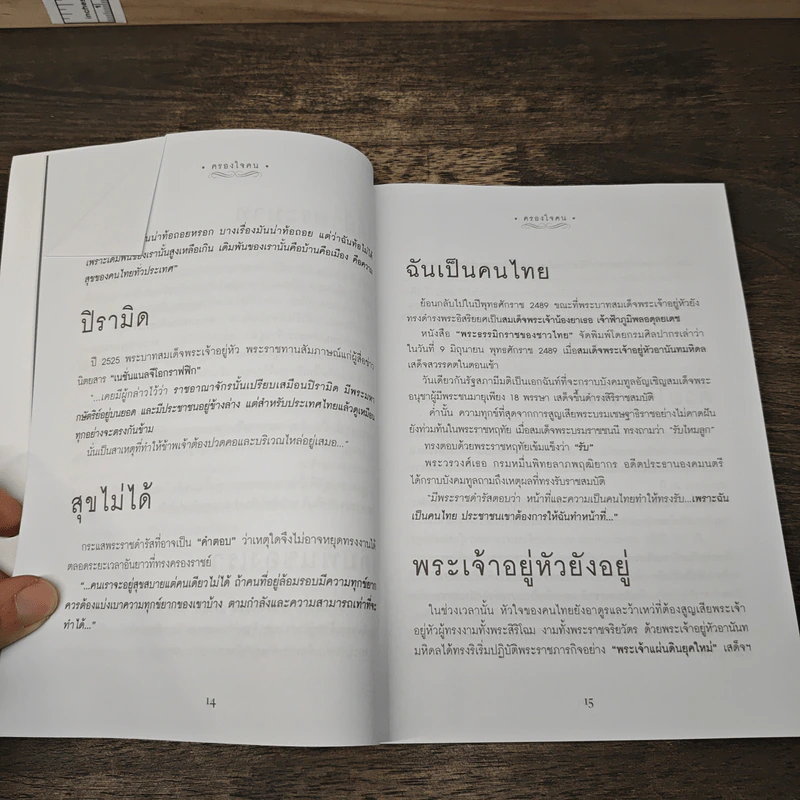 inches
• ครองใจคน •
น่าท้อถอยหรอก บางเรื่องมันน่าท้อถอย แต่ว่าฉันท้อไม่ได้
เพราะเดิมพันของเรานั้นสูงเหลือเกิน เดิมพันของเรานั้นคือบ้านคือเมือง คือความ
สุขของคนไทยทั่วประเทศ"
ปิรามิด
ปี 2525 พระบาทสมเด็จพระเจ้าอยู่หัว พระราชทานสัมภาษณ์แก่ผู้สื่อข่าว
นิตยสาร "เนชั่นแนลจีโอกราฟฟิก"
"...เคยมีผู้กล่าวไว้ว่า ราชอาณาจักรนั้นเปรียบเสมือนปิรามิด มีพระมหา
กษัตริย์อยู่บนยอด และมีประชาชนอยู่ข้างล่าง แต่สำหรับประเทศไทยแล้วดูเหมือน
ทุกอย่างจะตรงกันข้าม
นั่นเป็นสาเหตุที่ทำให้ข้าพเจ้าต้องปวดคอและบริเวณไหล่อยู่เสมอ..."
สุขไม่ได้
กระแสพระราชดำรัสที่อาจเป็น "คำตอบ" ว่าเหตุใดจึงไม่อาจหยุดทรงงานได้
ตลอดระยะเวลาอันยาวที่ทรงครองราชย์
"...คนเราจะอยู่สุขสบายแต่คนเดียวไม่ได้ ถ้าคนที่อยู่ล้อมรอบมีความทุกข์ยาก
ควรต้องแบ่งเบาความทุกข์ยากของเขาบ้าง ตามกำลังและความสามารถเท่าที่จะ
ทำได้..."
14
• ครองใจคน •
ฉันเป็นคนไทย
ย้อนกลับไปในปีพุทธศักราช 2489 ขณะที่พระบาทสมเด็จพระเจ้าอยู่หัวยัง
ทรงดำรงพระอิสริยยศเป็นสมเด็จพระเจ้าน้องยาเธอ เจ้าฟ้าภูมิพลอดุลยเดช
หนังสือ "พระธรรมิกราชของชาวไทย" จัดพิมพ์โดยกรมศิลปากรเล่าว่า
ในวันที่ 9 มิถุนายน พุทธศักราช 2489 เมื่อสมเด็จพระเจ้าอยู่หัวอานันทมหิดล
เสด็จสวรรคตในตอนเช้า
วันเดียวกันรัฐสภามีมติเป็นเอกฉันท์ที่จะกราบบังคมทูลอัญเชิญสมเด็จพระ
อนุชาผู้มีพระชนมายุเพียง 18 พรรษา เสด็จขึ้นดำรงสิริราชสมบัติ
ค่ำนั้น ความทุกข์ที่สุดจากการสูญเสียพระบรมเชษฐาธิราชอย่างไม่คาดฝัน
ยังท่วมท้นในพระราชหฤทัย เมื่อสมเด็จพระบรมราชชนนี ทรงถามว่า "รับไหมลูก"
ทรงตอบด้วยพระราชหฤทัยเข้มแข็งว่า "รับ"
พระวรวงศ์เธอ กรมหมื่นพิทยลาภพฤฒิยากร อดีตประธานองคมนตรี
ได้กราบบังคมทูลถามถึงเหตุผลที่ทรงรับราชสมบัติ
"มีพระราชดำรัสตอบว่า หน้าที่และความเป็นคนไทยทำให้ทรงรับ...เพราะฉัน
เป็นคนไทย ประชาชนเขาต้องการให้ฉันทำหน้าที่..."
พระเจ้าอยู่หัวยังอยู่
ในช่วงเวลานั้น หัวใจของคนไทยยังอาดูรและว้าเหว่ที่ต้องสูญเสียพระเจ้า
อยู่หัวผู้ทรงงามทั้งพระสิริโฉม งามทั้งพระราชจริยวัตร ด้วยพระเจ้าอยู่หัวอานันท
มหิดลได้ทรงริเริ่มปฏิบัติพระราชภารกิจอย่าง "พระเจ้าแผ่นดินยุคใหม่" เสด็จฯ
15